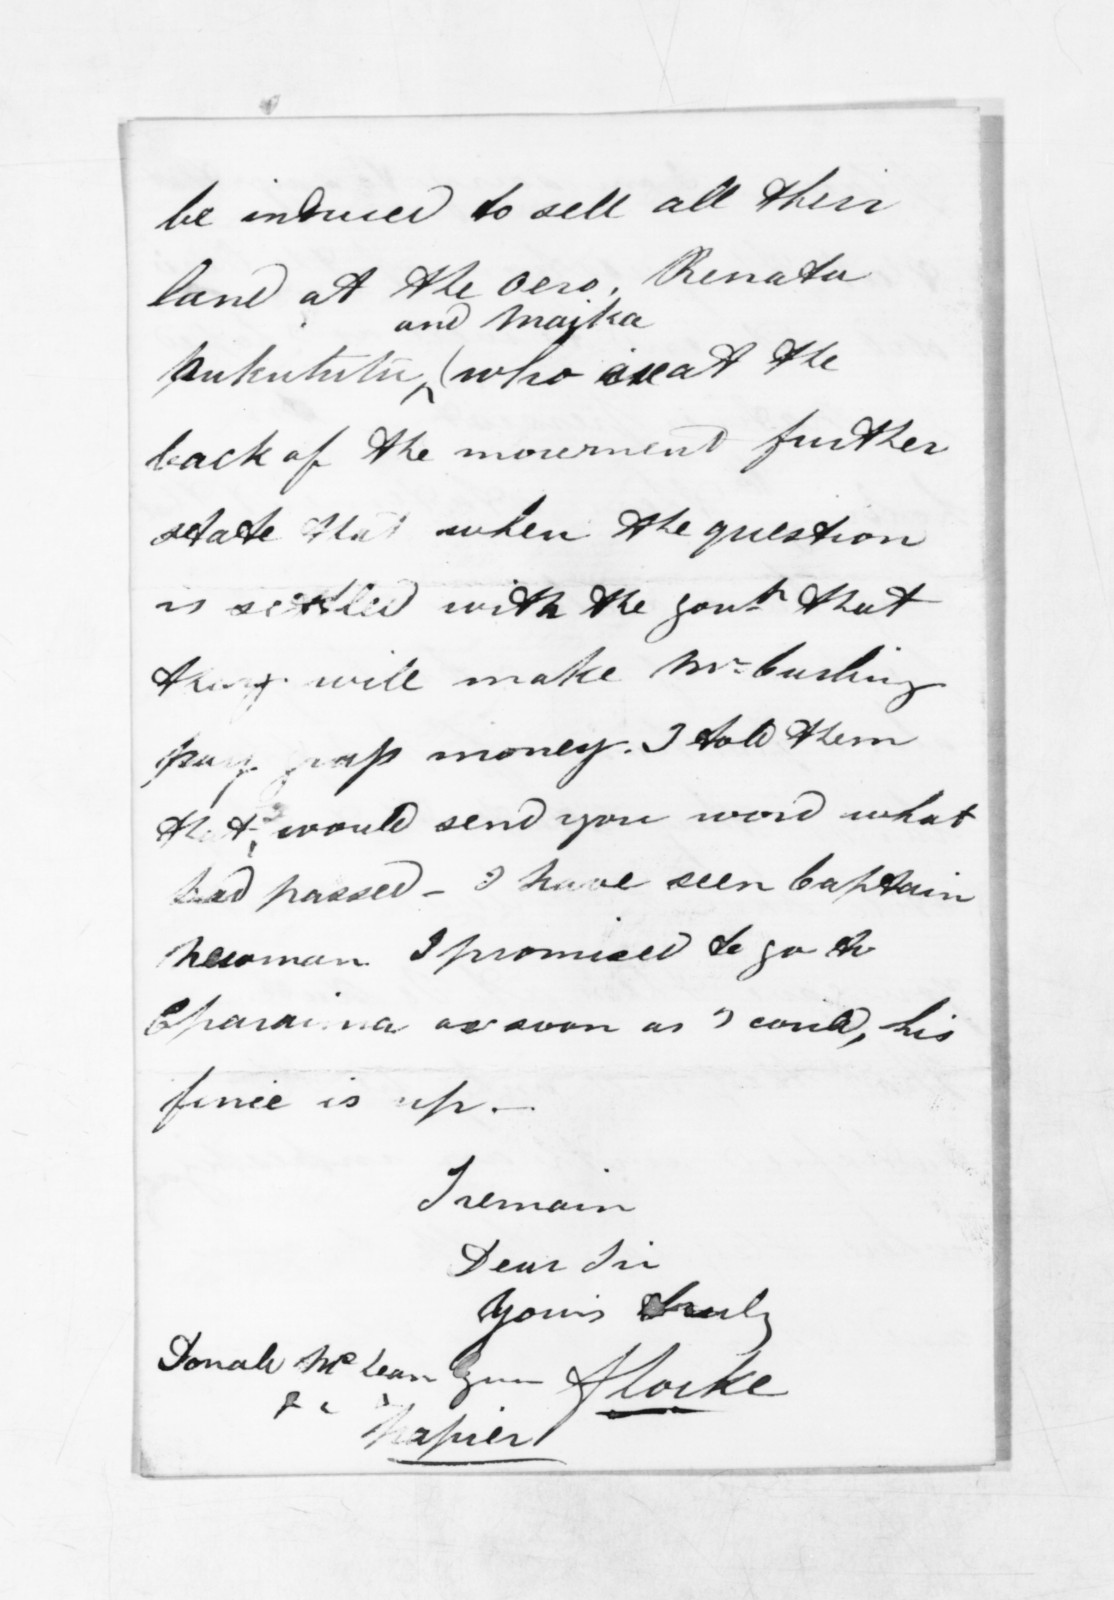 be induced to sell all their
land at the Oero. Renata
and Maika
Pukututu, (who is at the
back of the movement further
state that when the question
is settled with the Govt. that
they will make Mr. Cushing
pay grass money. I told them
that I would send you word what
had passed - I have seen Captain
Newman I promised to go to
Eparaima as soon as I could, his
fence is up. -
I remain
Dear Sir
Yours truly
S Locke
Donald McLean Esqre
&c
Napier